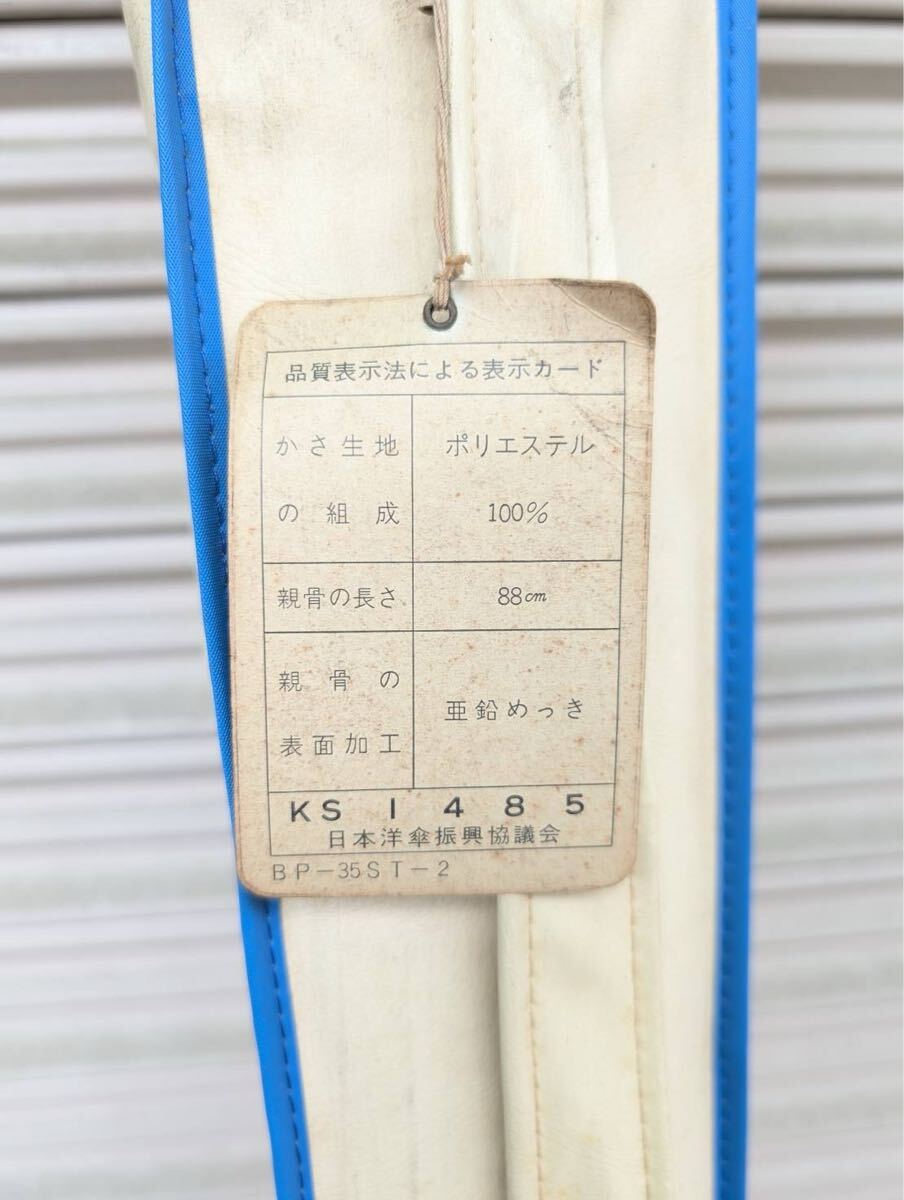 品質表示法による表示カード
かさ生地の組成
ポリエステル
100%
親骨の長さ
88cm
親骨の表面加工
亜鉛めっき
KS 1485
日本洋傘振興協議会
BP-35ST-2